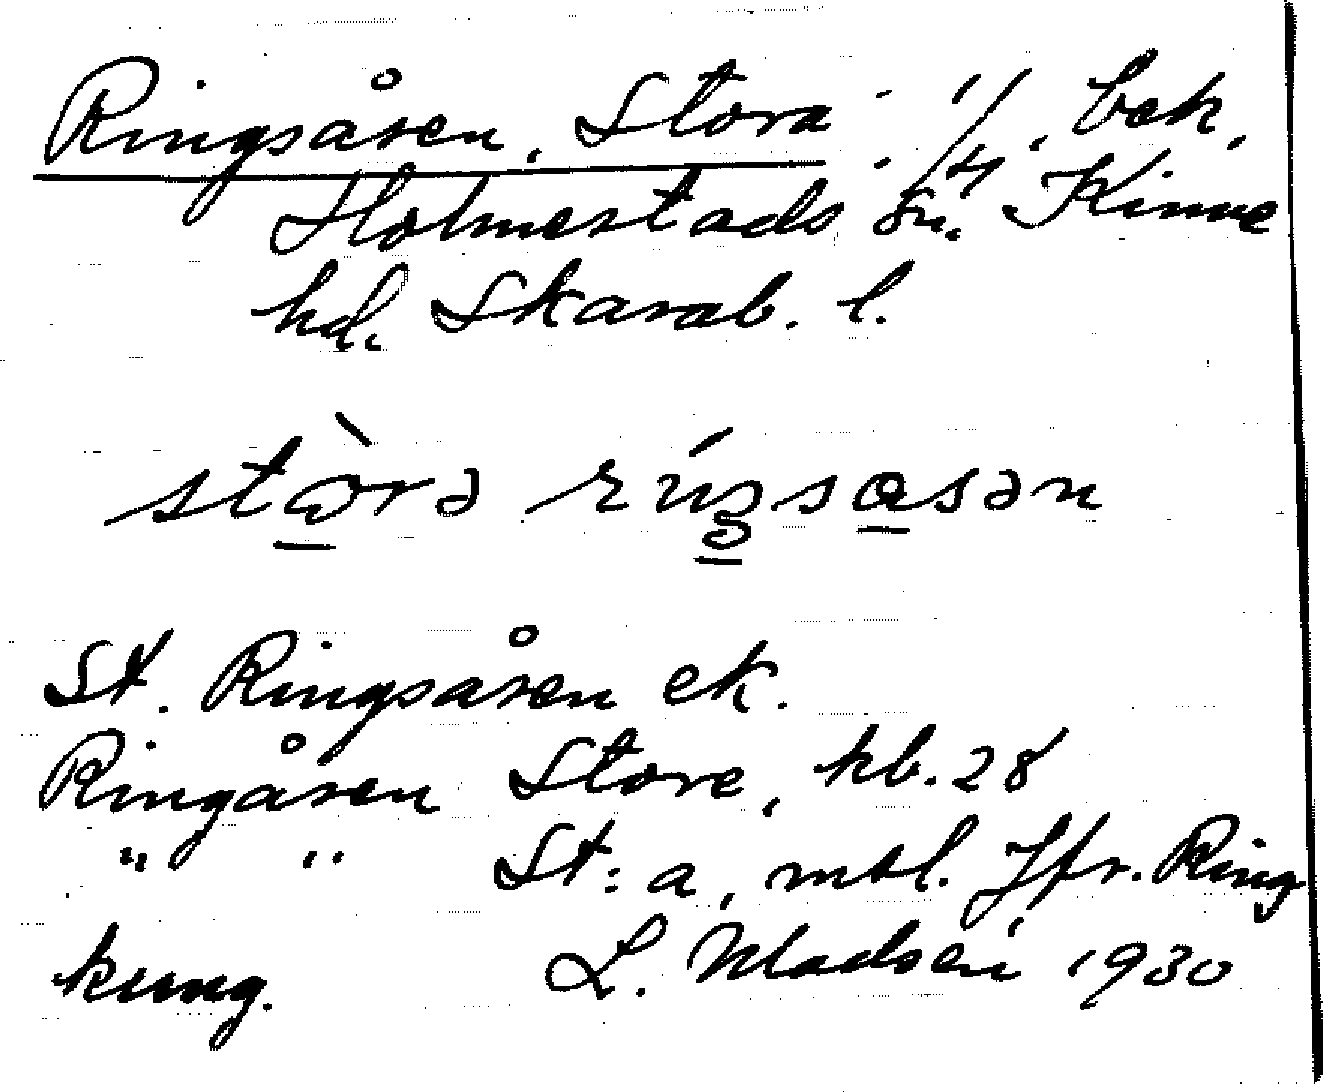 Ringsåsen, Stora : 1/4, bek.
Holmestads sn. Kinne
hd. Skarab. l.
stòrə ríŋsasən
St. Ringsåsen ek.
Ringåsen Store, kb. 28
" " St:a, mtl. Jfr. Ring
kung. L. Madsén 1930